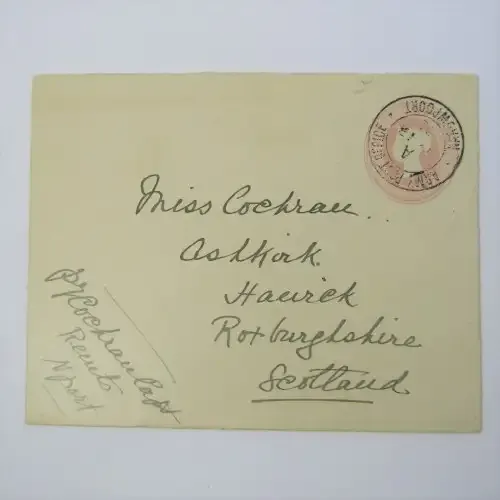 ARMY POST OFFICE
A
Miss Cochran
Ashkirk
Hawick
Roxburghshire
Scotland
Cochran Capt
N'port